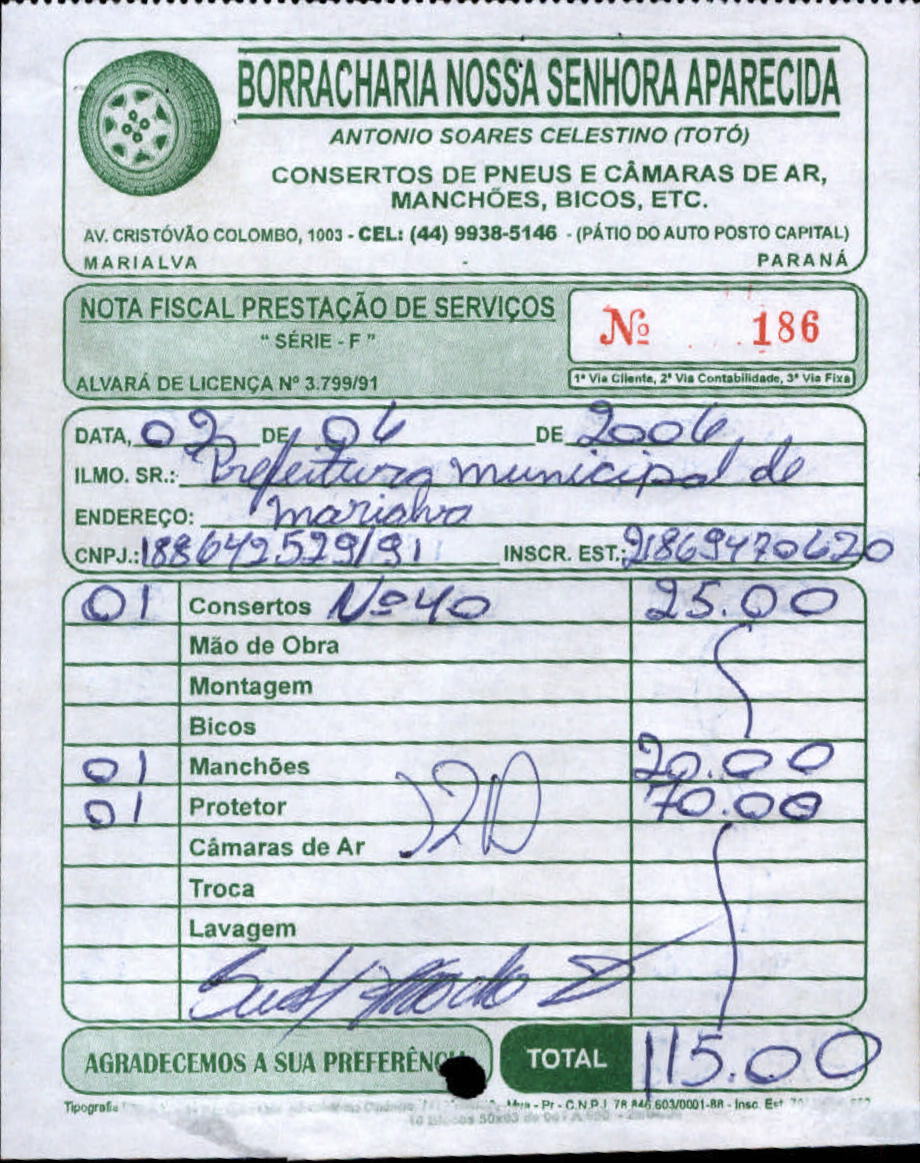 BORRACHARIA NOSSA SENHORA APARECIDA
ANTONIO SOARES CELESTINO (TOTÓ)
CONSERTOS DE PNEUS E CÂMARAS DE AR,
MANCHÕES, BICOS, ETC.
AV. CRISTÓVÃO COLOMBO, 1003 - CEL: (44) 9938-5146 - (PÁTIO DO AUTO POSTO CAPITAL)
MARIALVA PARANÁ
NOTA FISCAL PRESTAÇÃO DE SERVIÇOS
" SÉRIE - F "
Nº 186
ALVARÁ DE LICENÇA Nº 3.799/91
1ª Via Cliente, 2ª Via Contabilidade, 3ª Via Fixa
DATA, 02 DE 06 DE 2006
ILMO. SR.: Prefeitura municipal de
ENDEREÇO: marialva
CNPJ.: 188642529/91 INSCR. EST.: 21869470620
01 Consertos Nº 40 25.00
Mão de Obra
Montagem
Bicos
01 Manchões 20.00
01 Protetor 70.00
Câmaras de Ar
Troca
Lavagem
AGRADECEMOS A SUA PREFERÊNCIA
TOTAL 115.00
Tipografia - Pr - C.N.P.J. 78.846.603/0001-88 - Insc. Est.